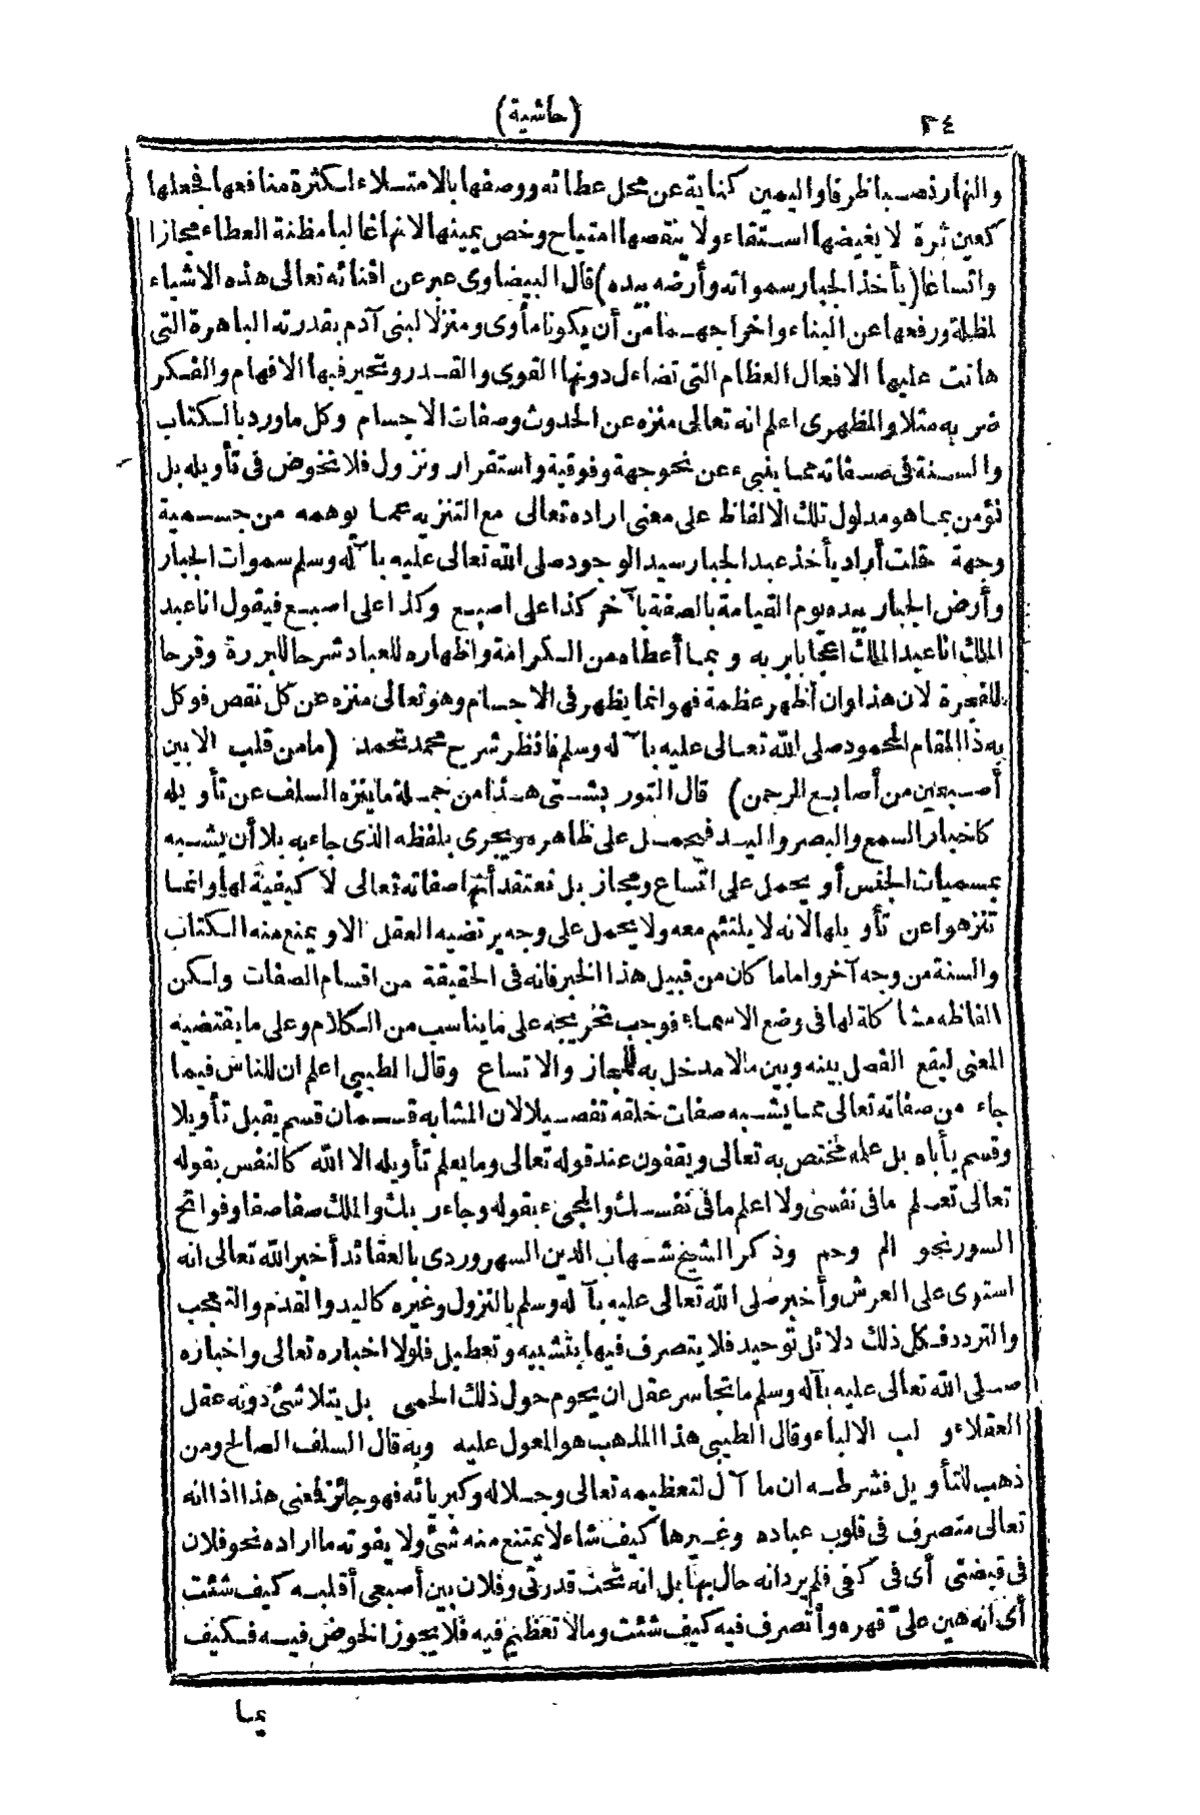 ٣٤
(حاشية)
والنهار نصبا ظرفا واليمين كناية عن محل عطائه ووصفها بالامتلاء لكثرة منافعها فجعلها
كعين ثرة لا يغيضها استقاء ولا ينقصها امتياح وخص يمينها لانها غالبا مظنة العطاء مجازا
واتساعا (يأخذ الجبار سمواته وأرضه بيده) قال البيضاوى عبر عن افنائه تعالى هذه الاشياء
لمظلة ورفعها عن البناء واخراجهـما من أن يكونا مأوى ومنزلا لبنى آدم بقدرته الباهرة التى
هانت عليها الافعال العظام التى تضاءل دونها القوى والقـدر وتحير فيها الافهام والفـكر
ضر به مثلا والمظهرى اعلم انه تعالى منزه عن الحدوث وصفات الاجسام وكل ماورد بالكتاب
والسنة فى صفاته مما ينبىء عن نحو جهة وفوقية واستقرار ونزول فلا نخوض فى تأويله بل
نؤمن بما هو مدلول تلك الالفاظ على معنى اراده تعالى مع التنزيه عما يوهمه من جسمية
وجهة قلت أراد يأخذ عبد الجبار سيد الوجود صلى الله تعالى عليه بآله وسلم سموات الجبار
وأرض الجبار بيده يوم القيامة بالصفة بآخر كذا على اصبع وكذا على اصبع فيقول انا عبد
الملك انا عبد الملك اعجابا بربه وبما أعطاه من الكرامة واظهاره للعباد شرحا للبررة وقرحا
للفجرة لان هذا وان أظهر عظمة فهو انما يظهر فى الاجسام وهو تعالى منزه عن كل نقص فوكل
به ذا المقام المحمود صلى الله تعالى عليه بآله وسلم فانظر شريح محمد تحمد (مامن قلب الا بين
أصبعين من أصابع الرحمن) قال التوربشتى هـذا من جملة ما يتنزه السلف عن تأويله
كاخبار السمع والبصر واليد فيحمل على ظاهره ويجرى بلفظه الذى جاء به بلا أن يشبه
بمسميات الجنس أو يحمل على اتساع ومجاز بل نعتقد أنها صفاته تعالى لا كيفية لها وانما
تنزهوا عن تأويلها لانه لا يلتئم معه ولا يحمل على وجه يرتضيه العقل الا ويمنع منه الكتاب
والسنة من وجه آخر واما ما كان من قبيل هذا الخبر فانه فى الحقيقة من اقسام الصفات ولكن
الفاظه مشاكلة لها فى وضع الاسماء فوجب تخريجه على ما يناسب من الكلام وعلى ما يقتضيه
المعنى ليقع الفصل بينه وبين مالا مدخل به للمجاز والاتساع وقال الطيبى اعلم ان للناس فيما
جاء من صفاته تعالى مما يشبه صفات خلقه تفصيلا لان المشابه قسمان قسم يقبل تأويلا
وقسم يأباه بل علمه مختص به تعالى ويقفون عند قوله تعالى وما يعلم تأويله الا الله كالنفس بقوله
تعالى تعـلم مافى نفسى ولا اعلم مافى نفسك والمجىء بقوله وجاء ربك والملك صفا صفا وفواتح
السور نحو الم وحم وذكر الشيخ شهاب الدين السهروردى بالعقائد أخبر الله تعالى انه
استوى على العرش وأخبر صلى الله تعالى عليه بآله وسلم بالنزول وغيره كاليد والقدم والتعجب
والتردد فكل ذلك دلائل توحيد فلا يتصرف فيها بتشبيه وتعطيل فلولا اخباره تعالى واخباره
صلى الله تعالى عليه بآله وسلم ما تجاسر عقل ان يحوم حول ذلك الحمى بل يتلاشئ دونه عقل
العقلاء و لب الالباء وقال الطيبى هذا المذهب هو المعول عليه وبه قال السلف الصالح ومن
ذهب للتأويل فشرطـه ان ما آل لتعظيمه تعالى وجـلاله وكبريائه فهو جائز فمعنى هذا اذا انه
تعالى متصرف فى قلوب عباده وغـيرها كيف شاء لا يمتنع منه شئ ولا يفوته ما اراده نحو فلان
فى قبضتى أى فى كفى فلم يرد انه حال بها بل انه تحت قدرتى وفلان بين أصبعى أقلبـه كيف شئت
أى انه هين علىّ قهره وأتصرف فيه كيف شئت ومالا تعظيم فيه فلا يجوز الخوض فيـه فـكيف
بما